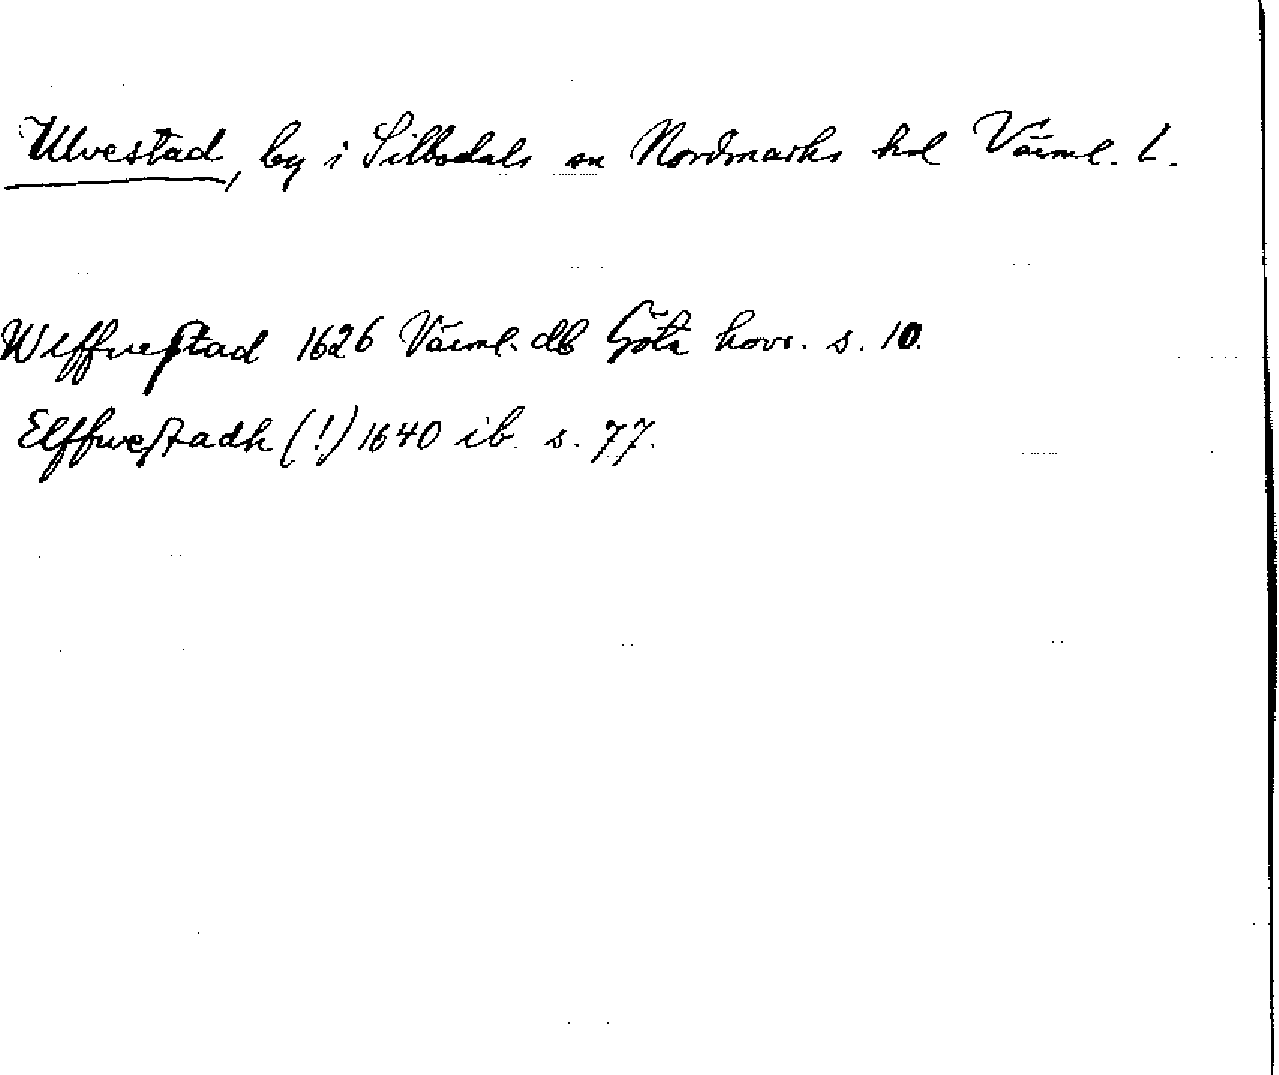 Ulvestad, by i Silbodals sn Nordmarks hd Värml. L.
Wlffwestad 1626 Värml. db Göta hovr. s. 10.
Elffwestadh (!) 1640 ib. s. 77.